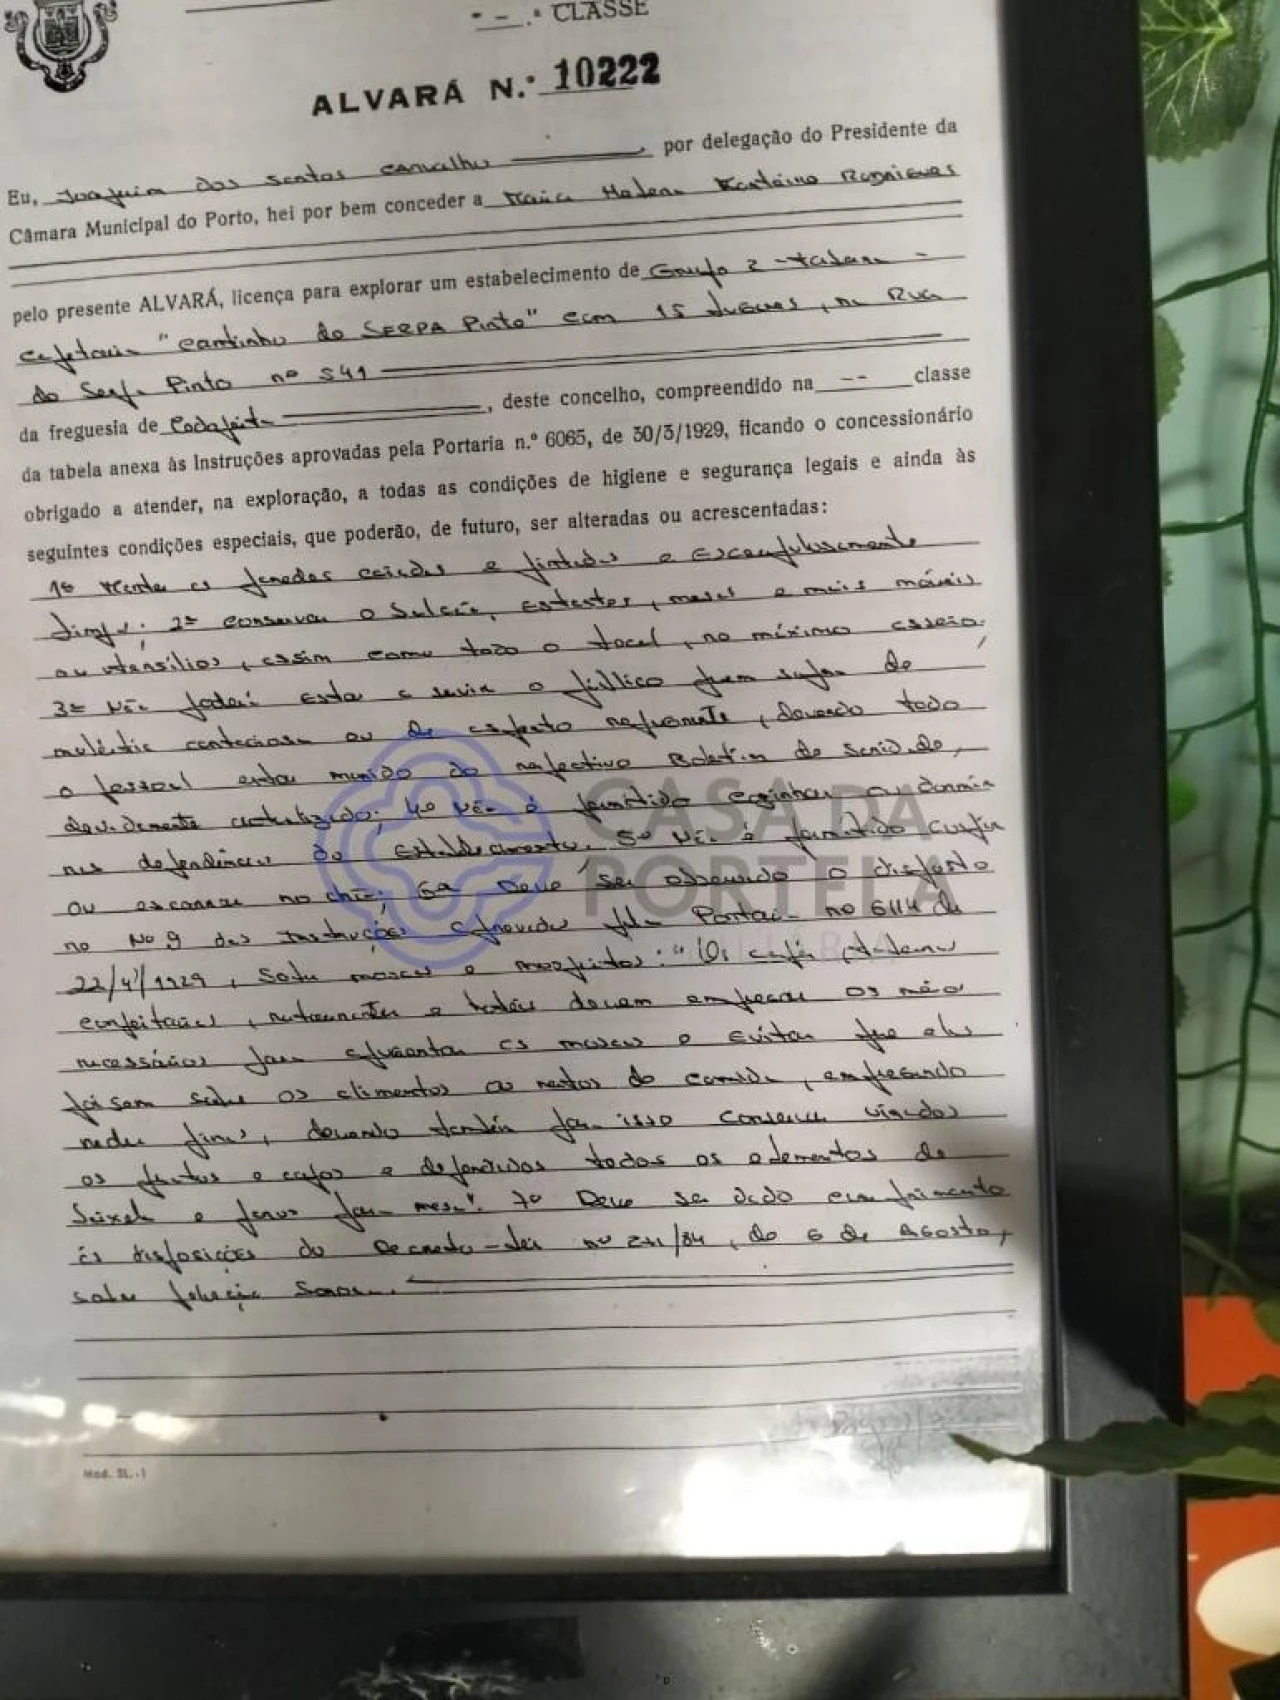 - .ª CLASSE
ALVARÁ N.º 10222
Eu, Joaquim dos Santos Carvalho, por delegação do Presidente da
Câmara Municipal do Porto, hei por bem conceder a Maria Helena Rodrigues
pelo presente ALVARÁ, licença para explorar um estabelecimento de Grupo 2 -
Cafetaria "Cantinho do SERPA Pinto" com 15 lugares, na Rua
de Serpa Pinto nº 541
da freguesia de Cedofeita, deste concelho, compreendido na -- classe
da tabela anexa às Instruções aprovadas pela Portaria n.º 6065, de 30/3/1929, ficando o concessionário
obrigado a atender, na exploração, a todas as condições de higiene e segurança legais e ainda às
seguintes condições especiais, que poderão, de futuro, ser alteradas ou acrescentadas:
1º Manter as paredes caiadas e pintadas e Escrupulosamente
limpas; 2º Conservar o balcão, Estantes, mesas e mais móveis
ou utensílios, assim como todo o local, no máximo asseio.
3º Não poderá Estar a servir o público quem sofra de
moléstia contagiosa ou de aspecto repugnante, devendo todo
o pessoal estar munido do respectivo Boletim de sanidade,
devidamente actualizado; 4º Não é permitido cozinhar ou dormir
nas dependências do Estabelecimento. 5º Não é permitido cuspir
ou escarrar no chão; 6º Deve ser observado o disposto
no Nº 9 das Instruções aprovadas pela Portaria nº 6114 de
22/4/1929, sobre moscas e mosquitos: "Os cafés,
confeitarias, restaurantes e hotéis devem empregar os meios
necessários para afugentar as moscas e evitar que elas
poisem sobre os alimentos ou restos de comida, empregando
redes finas, devendo também para isso conservar
os frutos e e defendidos todos os elementos de
e para mesa". 7º Deve ser dado cumprimento
às disposições do Decreto-Lei nº 271/84, de 6 de Agosto,
sobre poluição Sonora.
Mod. SL.-1
CASA DA
PORTELA